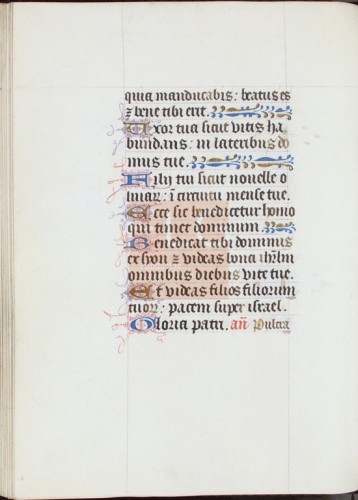 quia manducabis: beatus es
⁊ bene tibi erit.
Uxor tua sicut vitis ha
bundans: in lateribus do
mus tue.
Filij tui sicut nouelle o
liuaꝝ: ī circuitu mense tue.
Ecce sic benedicetur homo
qui timet dominum.
Benedicat tibi dominus
ex syon ⁊ videas bona ihrl̄m
omnibus diebus vite tue.
Et videas filios filiorum
tuoꝝ: pacem super israel.
Gloria patri. an̄ Pulcra